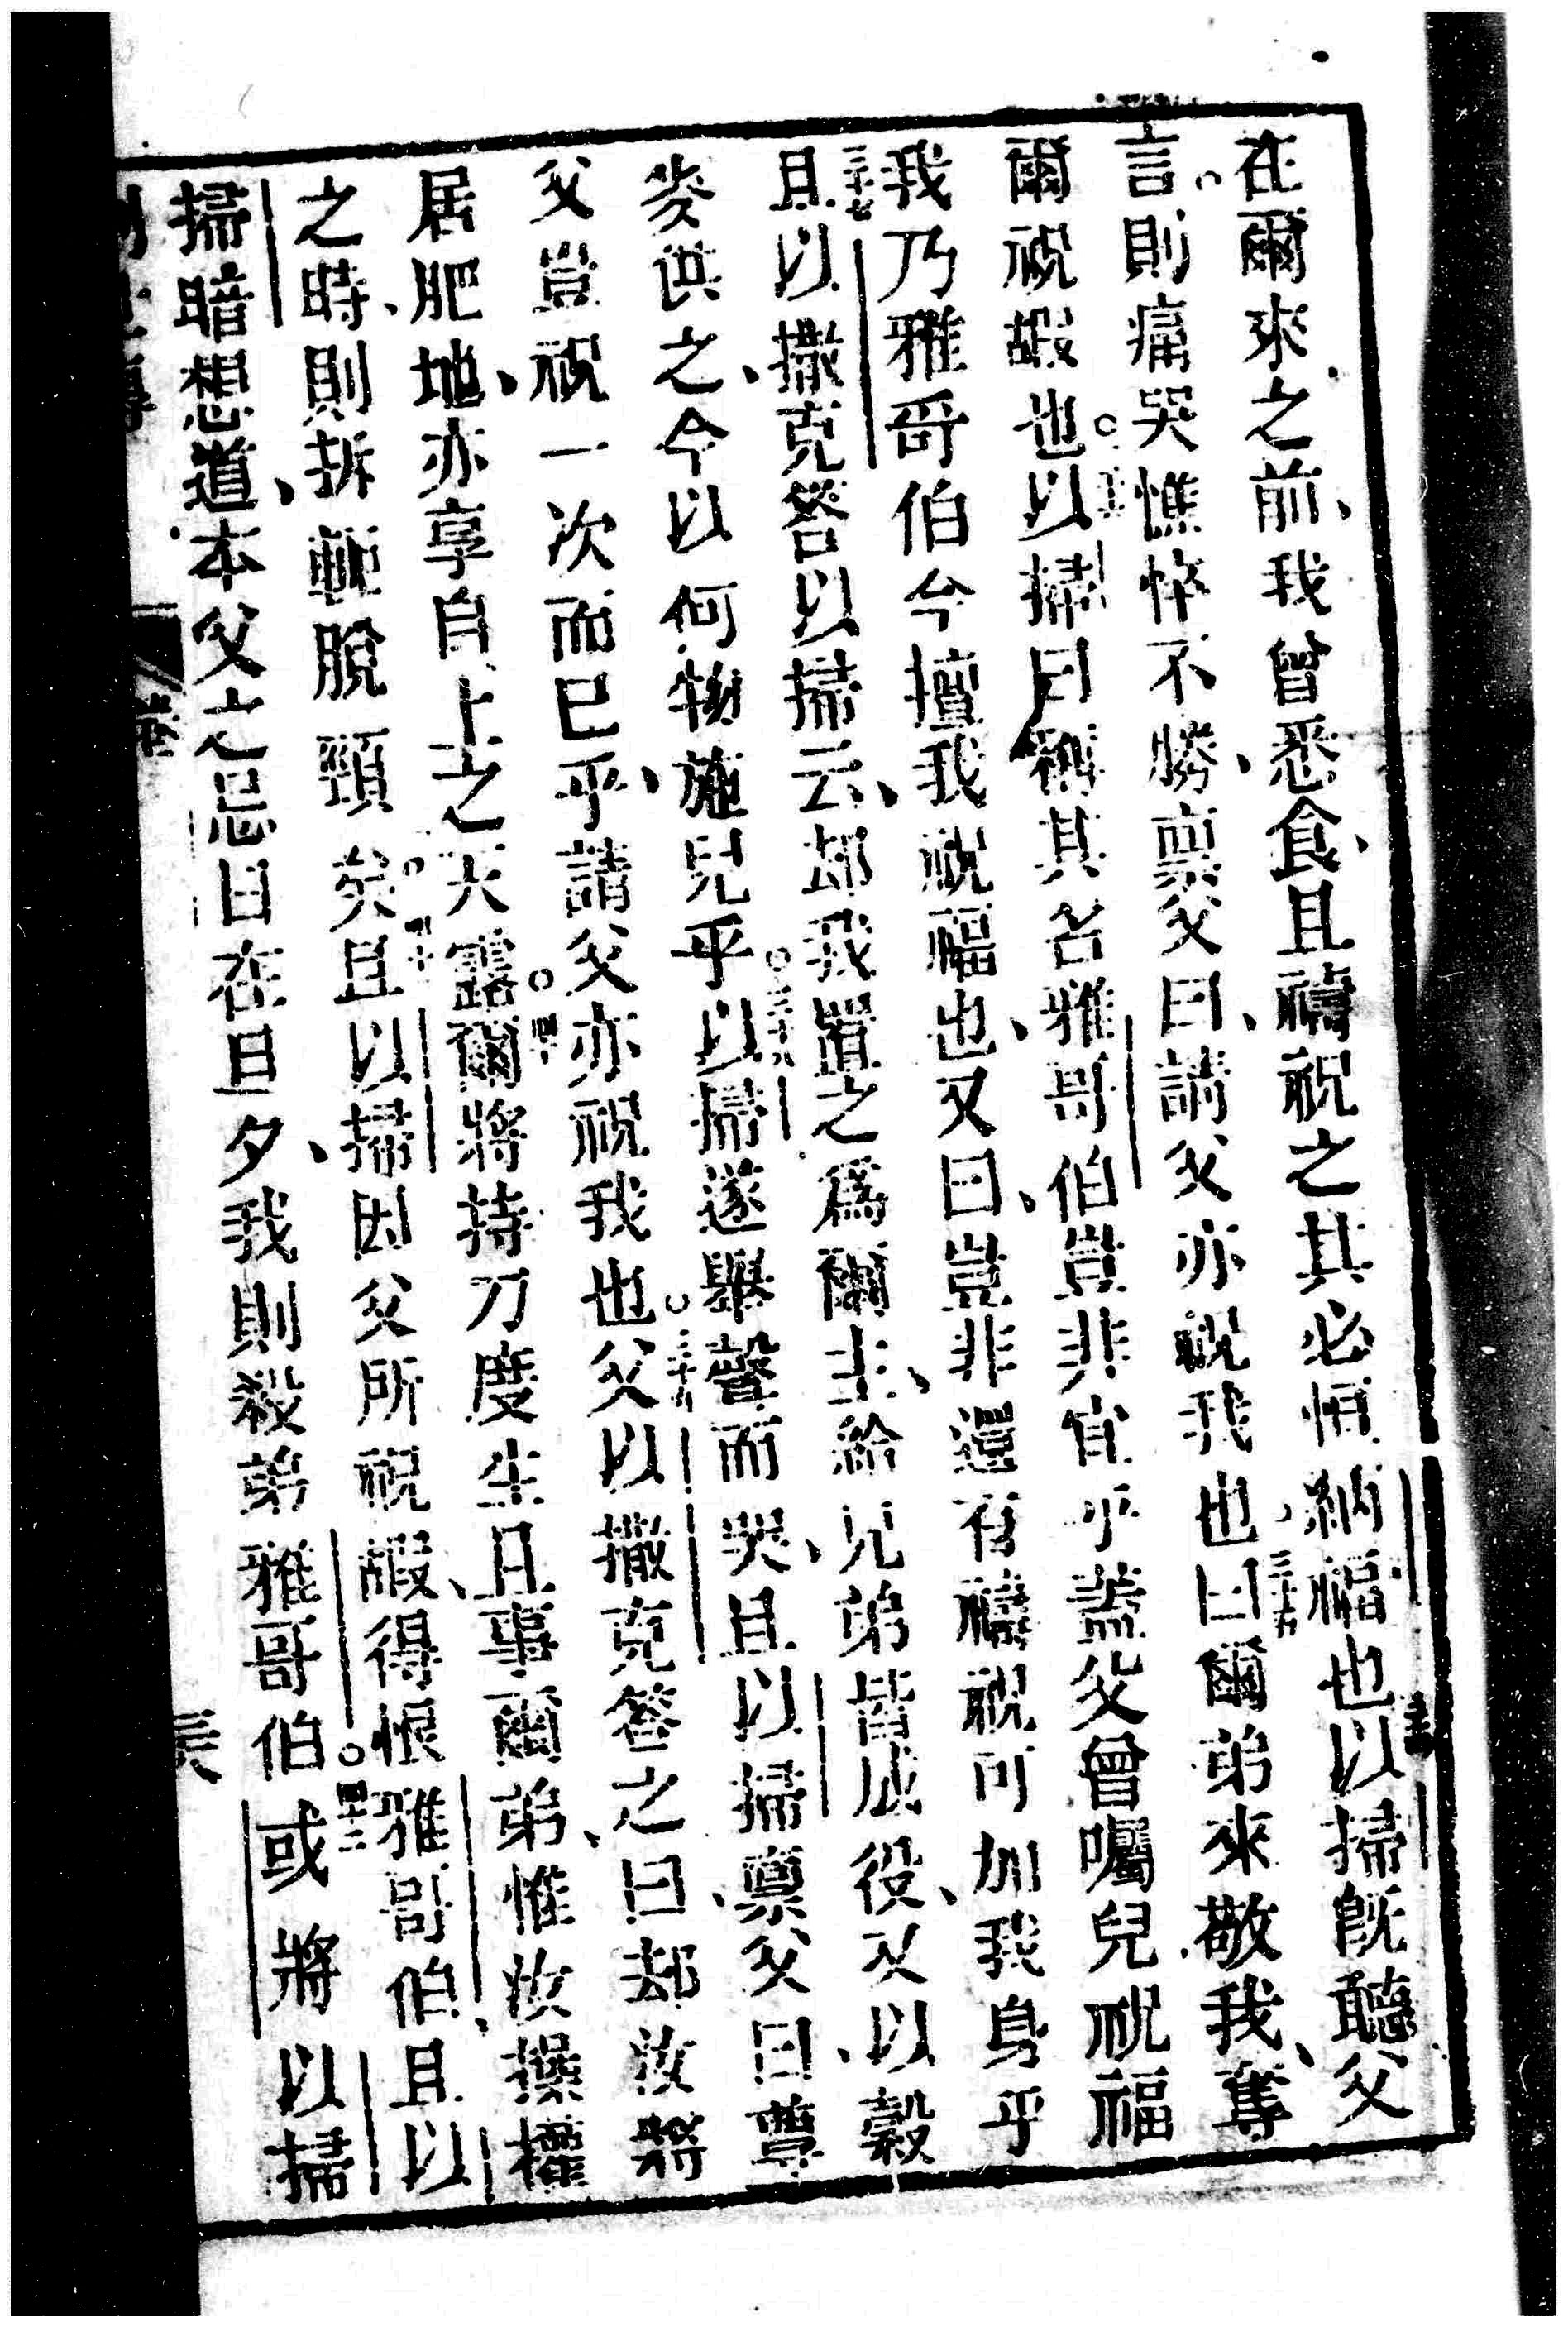 在爾來之前、我曾悉食、且禱祝之、其必恒納福也。三十四以掃既聽父
言、則痛哭憔悴不勝、禀父曰、請父亦祝我也。三十五曰爾弟來敬我、奪
爾祝嘏也。三十六以掃曰稱其名雅哥伯豈非宜乎蓋父曾囑兒祝福
我乃雅哥伯今擅我祝福也、又曰、豈非還有禱祝可加我身乎
三十七且以撒克答以掃云、却我置之為爾主、給兄弟皆成役、又以穀
麥供之、今以何物施兒乎。三十八以掃遂舉聲而哭、且以掃禀父曰、尊
父豈祝一次而已乎、請父亦祝我也。三十九父以撒克答之曰、却汝將
居肥地、亦享自上之天露。四十爾將持刀度生且事爾弟、惟汝操權
之時、則拆軛脫頸矣。四十一且以掃因父所祝嘏、得恨雅哥伯、且以
掃暗想道、本父之忌日在旦夕、我則殺弟雅哥伯。四十二或將以掃